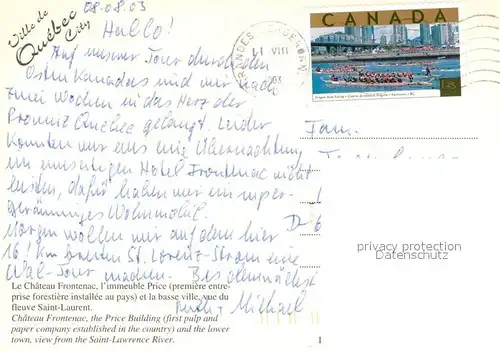 Ville de
Québec
City
08.08.03
Hallo!
Auf unserer Tour durch den
Osten Kanadas sind wir nach
zwei Wochen in das Herz der
Provinz Quebec gelangt. Leider
konnten wir uns eine Übernachtung
im einmaligen Hotel Frontenac nicht
leisten, dafür haben wir ein super-
geräumiges Wohnmobil.
Morgen wollen wir auf dem hier
16 km breiten St. Lorenz-Strom eine
Wal-Tour machen. Bis demnächst
Ruth + Michael
Le Château Frontenac, l'immeuble Price (première entre-
prise forestière installée au pays) et la basse ville, vue du
fleuve Saint-Laurent.
Château Frontenac, the Price Building (first pulp and
paper company established in the country) and the lower
town, view from the Saint-Lawrence River.
CANADA
VIII
03
Fam.
D-6
privacy protection
by AKpool.de